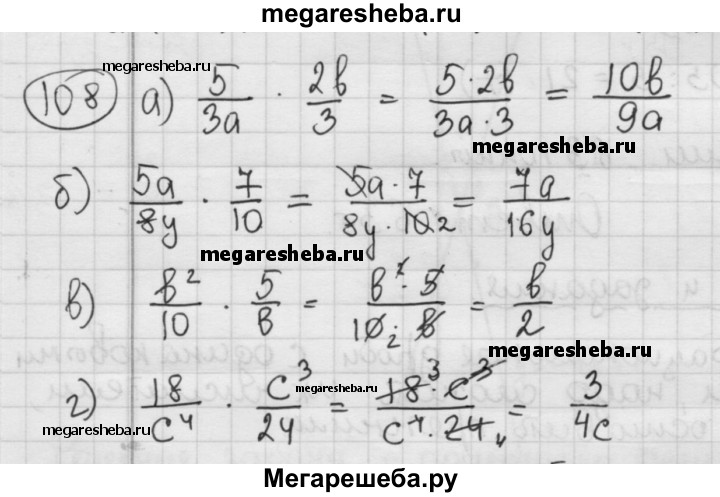 megaresheba.ru
megaresheba.ru
108 а) 5/3a · 2b/3 = 5·2b/3a·3 = 10b/9a
megaresheba.ru
б) 5a/8y · 7/10 = 5a·7/8y·10 2 = 7a/16y
megaresheba.ru
в) b²/10 · 5/b = b²·5/10 2·b = b/2
megaresheba.ru
г) 18/c⁴ · c³/24 = 18 3·c³/c⁴·24 4 = 3/4c
megaresheba.ru
megaresheba.ru
Мегарешеба.ру